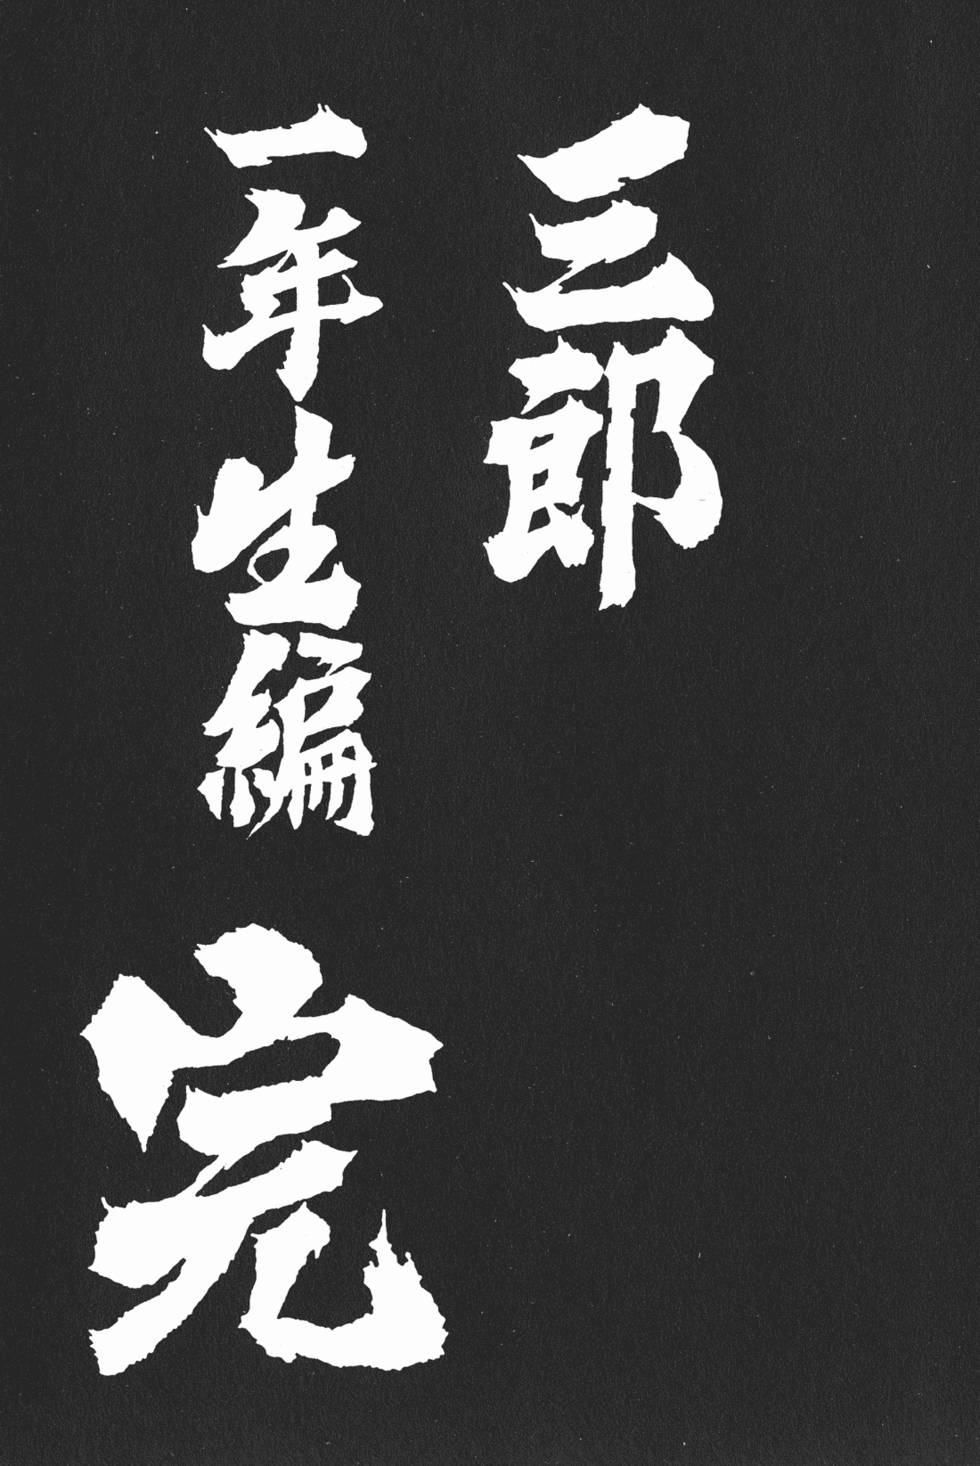 三郎
一年生編
完